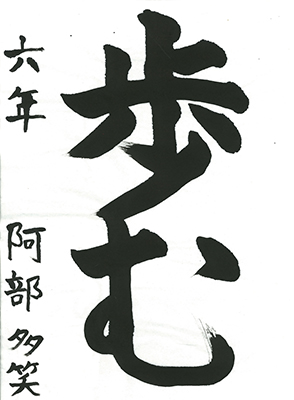 歩む
六年 阿部多笑